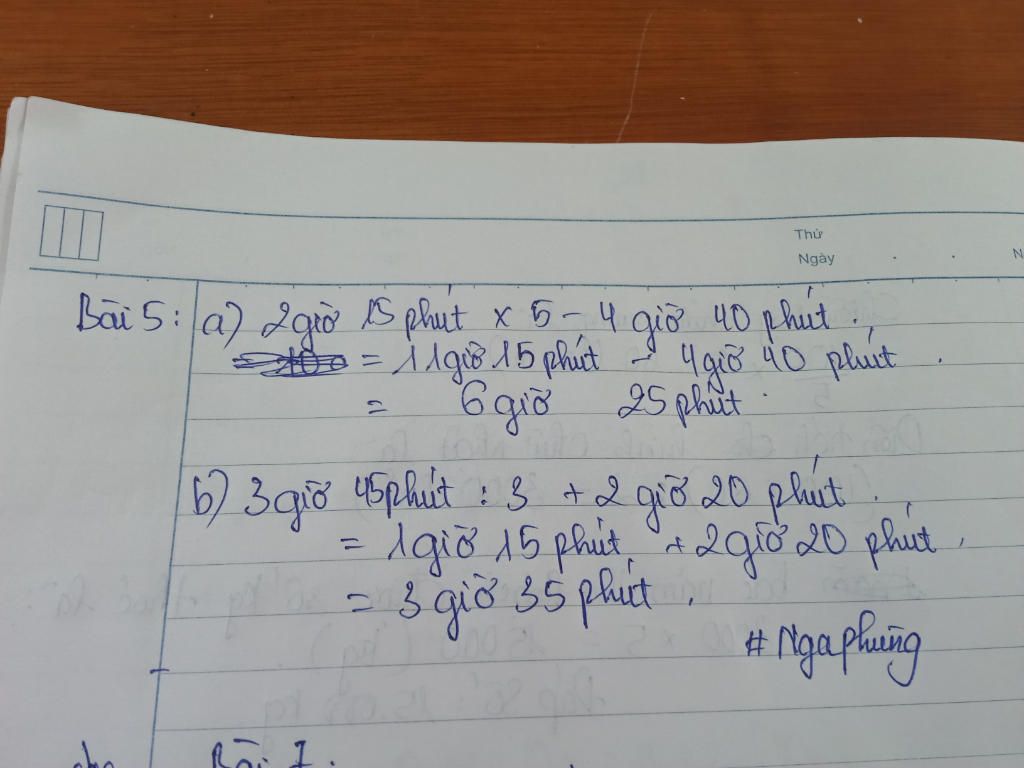 Thứ
Ngày
Bài 5: a) 2 giờ 15 phút x 5 - 4 giờ 40 phút.
= 11 giờ 15 phút - 4 giờ 40 phút.
= 6 giờ 25 phút.
b) 3 giờ 45 phút : 3 + 2 giờ 20 phút.
= 1 giờ 15 phút + 2 giờ 20 phút.
= 3 giờ 35 phút.
# Ngaphung
Bài 1: